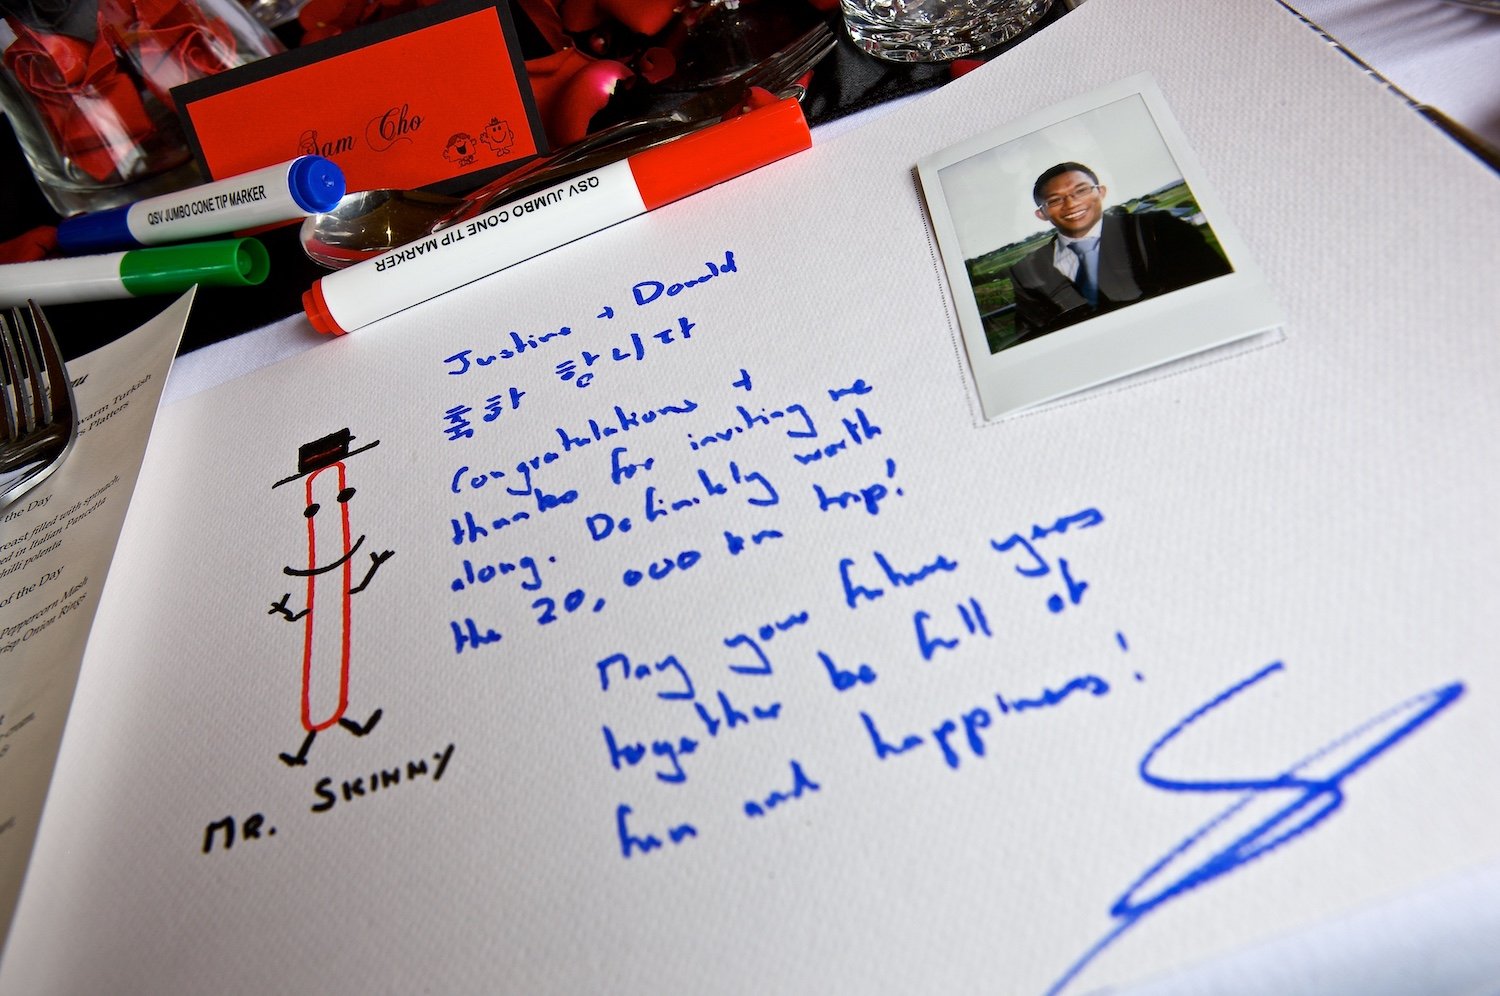 Sam Cho
QSV JUMBO CONE TIP MARKER
QSV JUMBO CONE TIP MARKER
Justine + Donald
Congratulations +
thanks for inviting me
along. Definitely worth
the 20,000 km trip!
May your future years
together be full of
fun and happiness!
MR. SKINNY
warm Turkish
Platters
the Day
filled with spinach,
ed in Italian Pancetta
chilli polenta
of the Day
Peppercorn Mash
risp Onion Rings